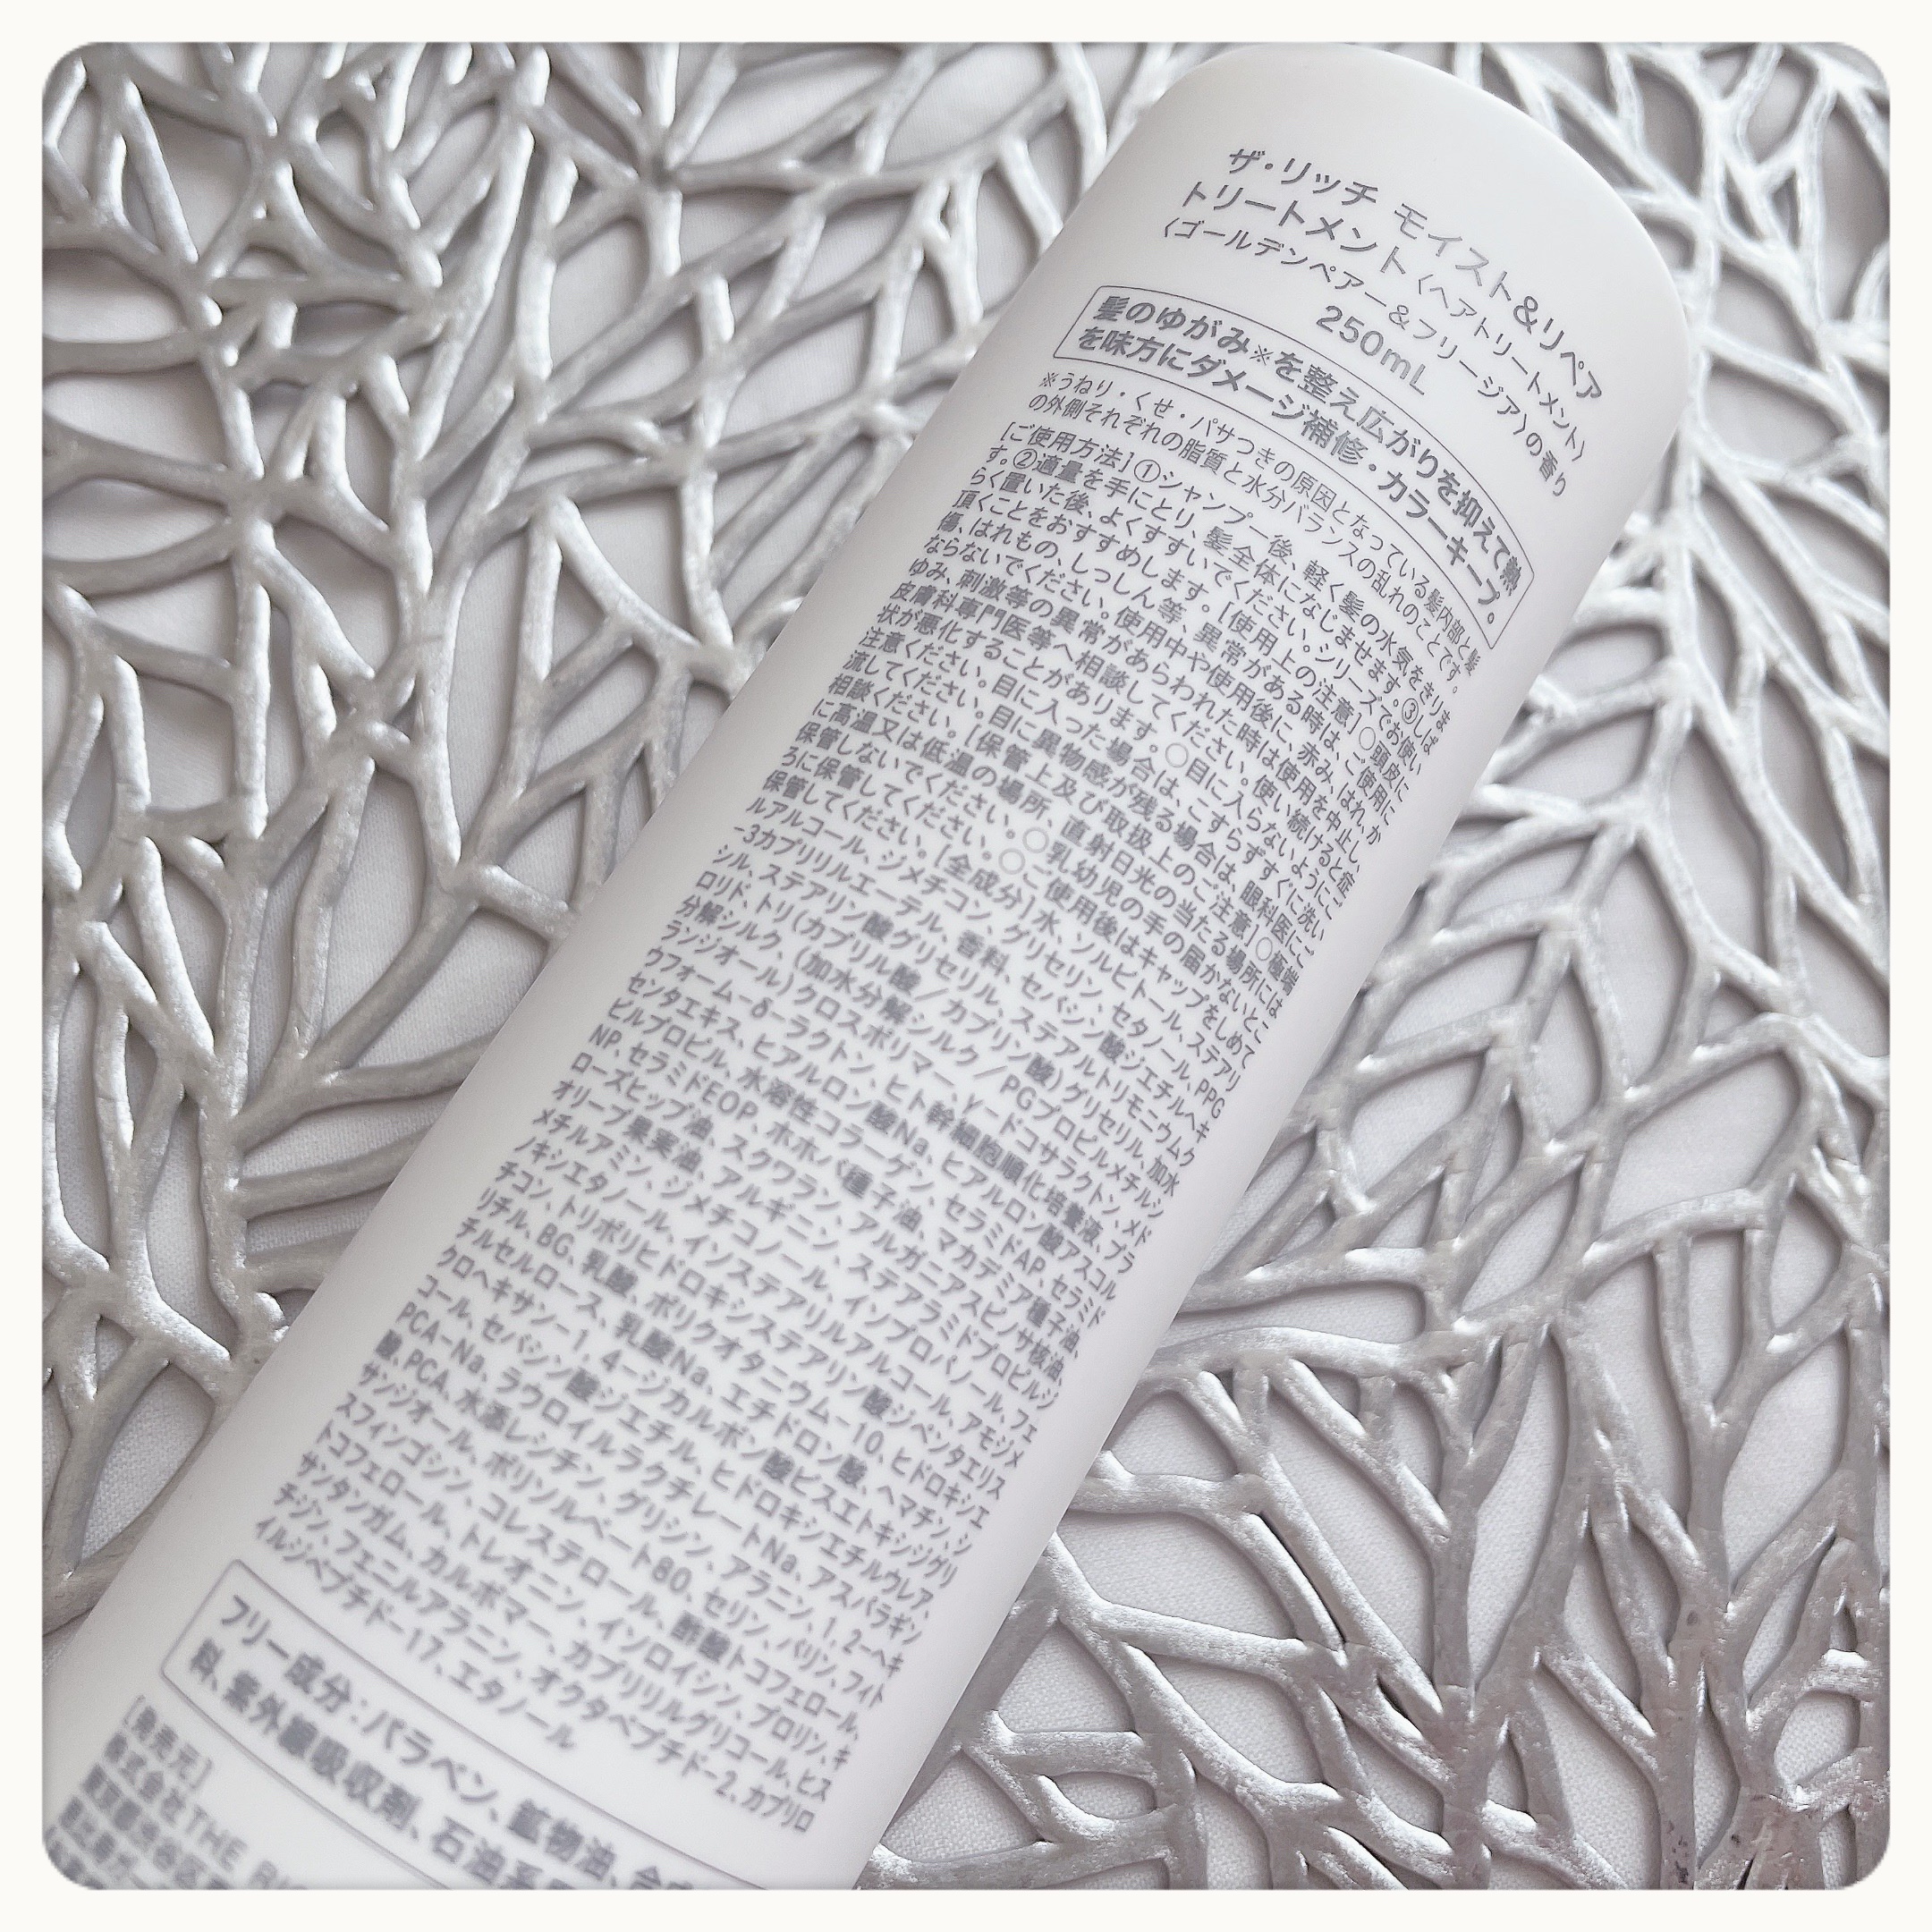 ザ・リッチ モイスト&リペア
トリートメント〈ヘアトリートメント〉
〈ゴールデンペアー&フリージア〉の香り
250mL
髪のゆがみ※を整え広がりを抑えて熱
を味方にダメージ補修・カラーキープ。
※うねり・くせ・パサつきの原因となっている髪内部と髪
の外側それぞれの脂質と水分バランスの乱れのことです。
[ご使用方法]①シャンプー後、軽く髪の水気をきりま
す。②適量を手にとり、髪全体になじませます。③しば
らく置いた後、よくすすいでください。シリーズでお使い
頂くことをおすすめします。[使用上の注意]○頭皮に
傷、はれもの、しっしん等、異常がある時は、ご使用に
ならないでください。使用中や使用後に、赤み、はれ、か
ゆみ、刺激等の異常があらわれた時は使用を中止し、
皮膚科専門医等へ相談してください。使い続けると症
状が悪化することがあります。○目に入らないようにご
注意ください。目に入った場合は、こすらずすぐに洗い
流してください。目に異物感が残る場合は、眼科医にご
相談ください。[保管上及び取扱上のご注意]○極端
に高温又は低温の場所、直射日光の当たる場所には
保管しないでください。○乳幼児の手の届かないとこ
ろに保管してください。○ご使用後はキャップをしめて
保管してください。[全成分]水、ソルビトール、ステアリ
ルアルコール、ジメチコン、グリセリン、セタノール、PPG
-3カプリリルエーテル、香料、セバシン酸ジエチルヘキ
シル、ステアリン酸グリセリル、ステアルトリモニウムク
ロリド、トリ(カプリル酸/カプリン酸)グリセリル、加水
分解シルク、(加水分解シルク/PGプロピルメチルシ
ランジオール)クロスポリマー、γ-ドコサラクトン、メド
ウフォーム-δ-ラクトン、ヒト幹細胞順化培養液、プラ
センタエキス、ヒアルロン酸Na、ヒアルロン酸アスコル
ビルプロピル、水溶性コラーゲン、セラミドAP、セラミド
NP、セラミドEOP、ホホバ種子油、マカデミア種子油、
ローズヒップ油、スクワラン、アルガニアスピノサ核油、
オリーブ果実油、アルギニン、ステアラミドプロピルジ
メチルアミン、ジメチコノール、イソプロパノール、フェ
ノキシエタノール、イソステアリルアルコール、アモジメ
チコン、トリポリヒドロキシステアリン酸ジペンタエリス
リチル、BG、乳酸、ポリクオタニウム-10、ヒドロキシエ
チルセルロース、乳酸Na、エチドロン酸、ヘマチン、シ
クロヘキサン-1,4-ジカルボン酸ビスエトキシジグリ
コール、セバシン酸ジエチル、ヒドロキシエチルウレア、
PCA-Na、ラウロイルラクチレートNa、アスパラギン
酸、PCA、水添レシチン、グリシン、アラニン、1,2-ヘキ
サンジオール、ポリソルベート80、セリン、バリン、フィト
スフィンゴシン、コレステロール、酢酸トコフェロール、
トコフェロール、トレオニン、イソロイシン、プロリン、キ
サンタンガム、カルボマー、カプリリルグリコール、ヒス
チジン、フェニルアラニン、オクタペプチド-2、カプリロ
イルジペプチド-17、エタノール
フリー成分：パラベン、鉱物油、合
料、紫外線吸収剤、石油系
[発売元]
株式会社THE
東京都渋谷区